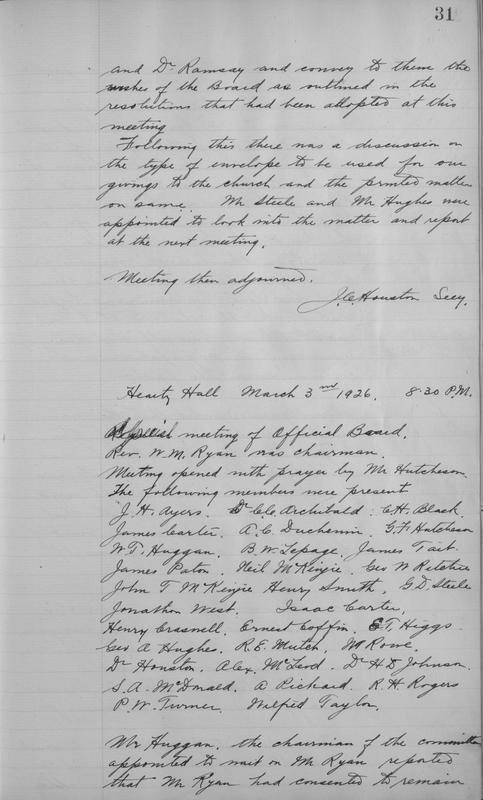 31
and Dr Ramsay and convey to them the
wishes of the Board as outlined in the
resolutions that had been adopted at this
meeting
Following this there was a discussion on
the type of envelope to be used for our
givings to the church and the printed matter
on same. Mr Steele and Mr Hughes were
appointed to look into the matter and report
at the next meeting.
Meeting then adjourned.
J.C. Houston Secy.
Hearty Hall March 3rd 1926. 8.30 P.M.
Special meeting of Official Board.
Rev. W. M. Ryan was chairman.
Meeting opened with prayer by Mr Hutcheson.
The following members were present
J. H. Ayers. Dr Archibald. C. H. Black.
James Carter. A. C. Duchemin. G. F. Hutcheson
W. T. Huggan. B. W. Lepage. James Tait.
James Paton. Neil McKenzie. Geo W Ritchie
John T McKenzie Henry Smith. G. D. Steele
Jonathon West. Isaac Carter,
Henry Ernest Coffin. E. T. Higgs
Geo A Hughes. R. E. Mutch. M Rowe.
Dr Houston. Alex. McLeod. Dr H D Johnson.
S. A. McDonald. A Pickard. R. H. Rogers
P. W. Turner. Wilfred Taylor.
Mr Huggan, the chairman of the committee
appointed to wait on Mr Ryan reported
that Mr Ryan had consented to remain